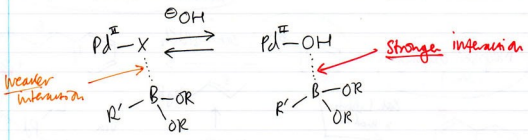 ⊖OH
Pd^II—X ⇌ Pd^II—OH
Stronger interaction
Weaker
interaction
R' B—OR R' B—OR
OR OR